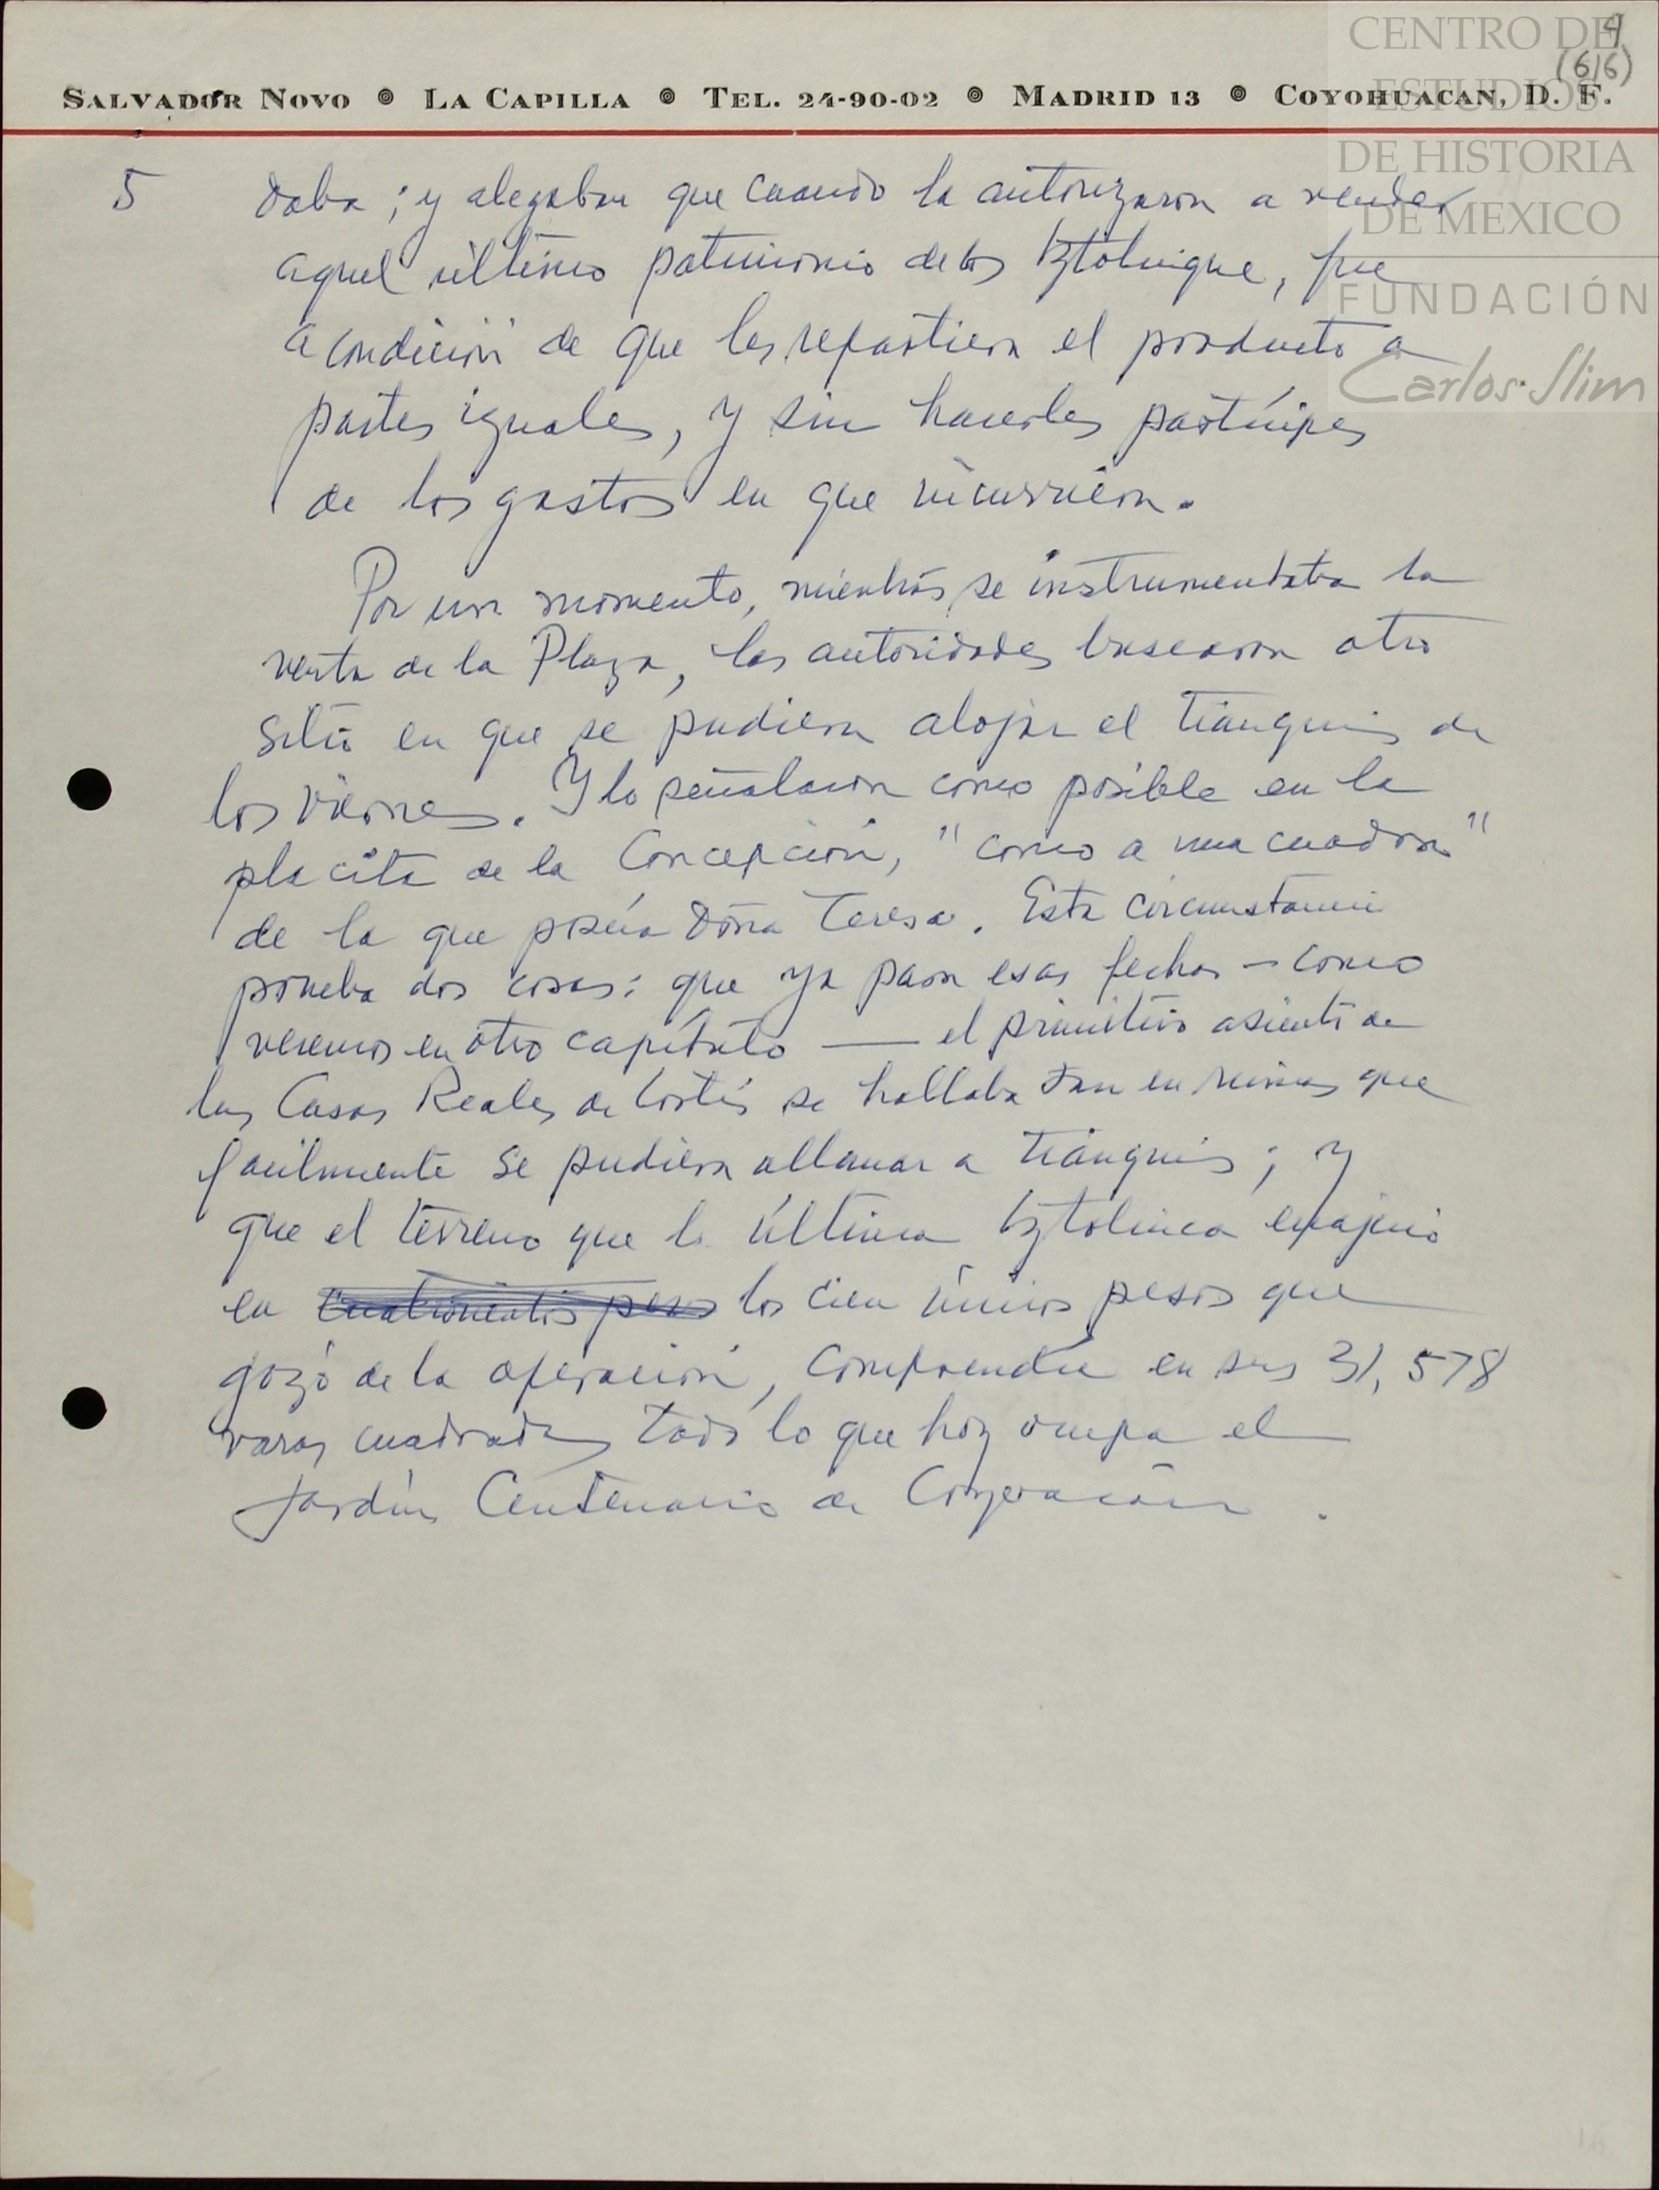 4
(616)
SALVADOR NOVO ◎ LA CAPILLA ◎ TEL. 24-90-02 ◎ MADRID 13 ◎ COYOHUACAN, D. F.
CENTRO DE
ESTUDIOS
DE HISTORIA
DE MEXICO
FUNDACIÓN
Carlos Slim
5 daba; y alegaban que cuando la autorizaron a vender
aquel último patrimonio de los Iztolinque, fue
a condición de que les repartiera el producto a
partes iguales, y sin hacerles partícipes
de los gastos en que incurriera.
Por un momento, mientras se instrumentaba la
venta de la Plaza, las autoridades buscaron otro
sitio en que se pudiera alojar el tianguis de
los viernes. Y lo señalaron como posible en la
placita de la Concepción, "como a una cuadra"
de la que poseía Doña Teresa. Esta circunstancia
prueba dos cosas: que ya para esas fechas — como
veremos en otro capítulo — el primitivo asiento de
las Casas Reales de Cortés se hallaba tan en ruinas que
facilmente se pudiera allanar a tianguis; y
que el terreno que la última Iztolinca enajenó
en cuatrocientos pesos los cien únicos pesos que
gozó de la operación, comprendía en sus 31,578
varas cuadradas todo lo que hoy ocupa el
Jardín Centenario de Coyoacán.